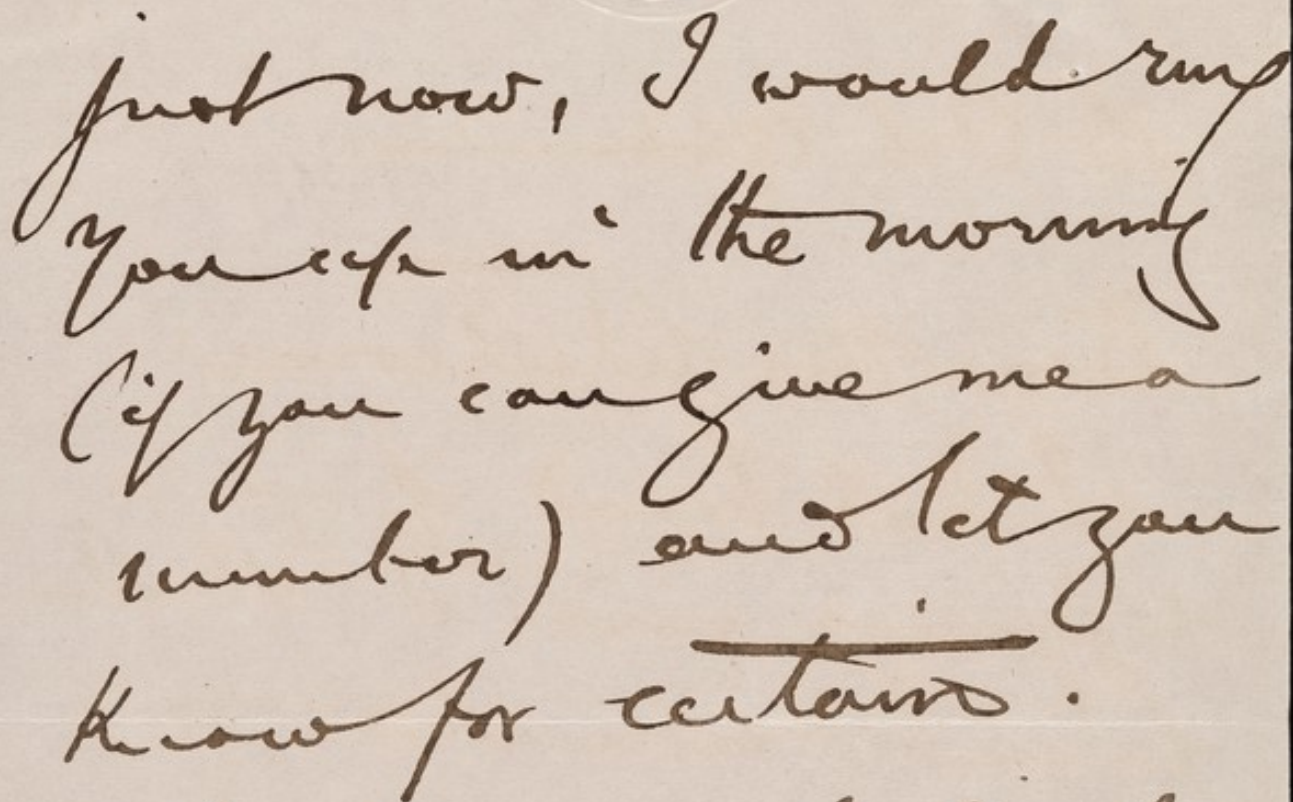 just now, I would ring
you up in the morning
(if you can give me a
number) and let you
know for certain.